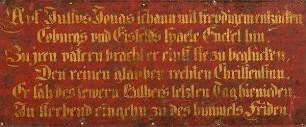 Auf Justus Jonas schaun mit freudigem entzücken
Coburgs und Eisfelds spaete Enckel hin
Zu jren vätern bracht er einst sie zu beglücken,
Den reinen glauben rechten Christensinn.
Er sah des tewern Luthers letzten Tag hienieden,
Jn sterbend eingehn zu des himmels Friden